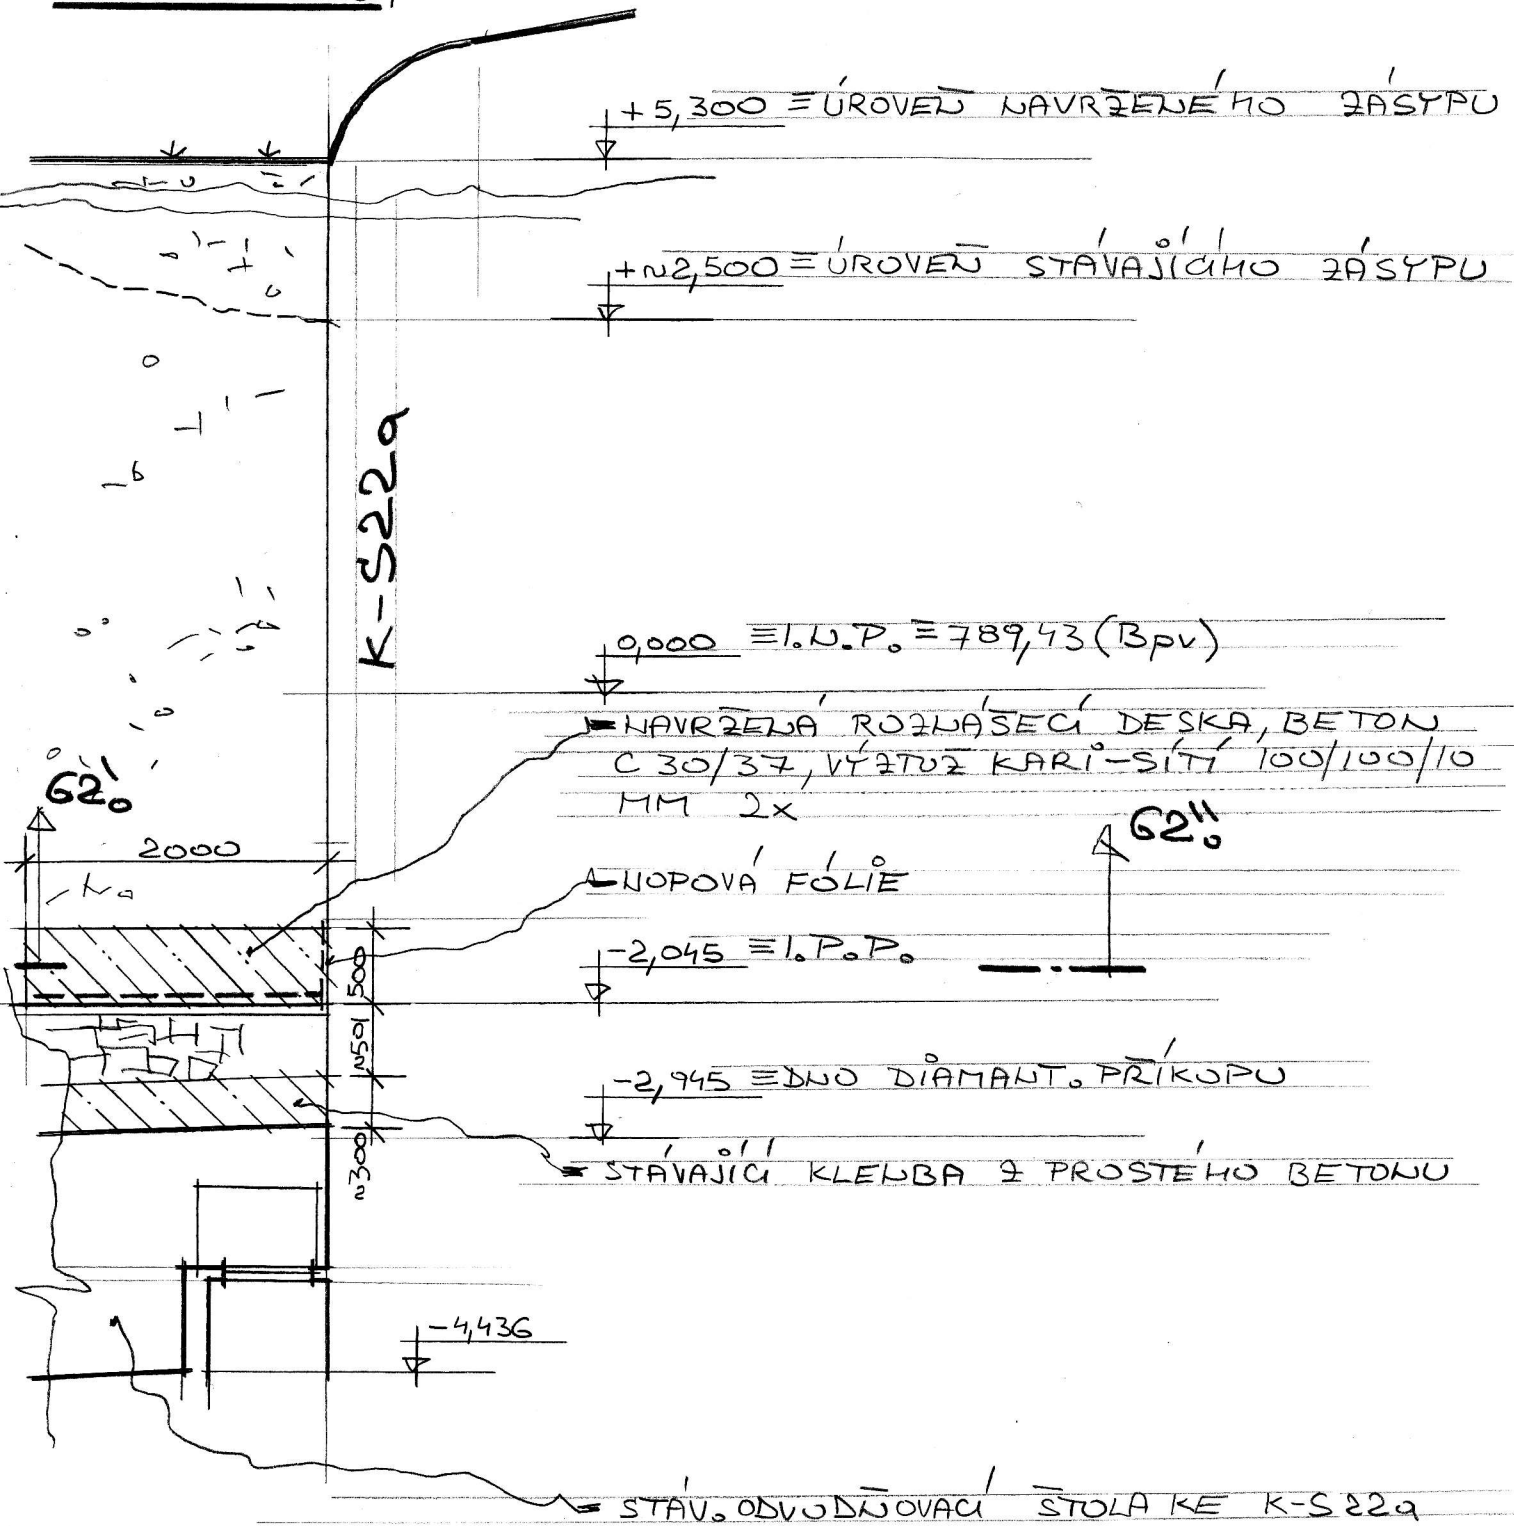 +5,300 ≡ ÚROVEŇ NAVRŽENÉHO ZÁSYPU
+~2,500 ≡ ÚROVEŇ STÁVAJÍCÍHO ZÁSYPU
K-S22a
0,000 ≡ I.N.P. ≡ 789,43 (Bpv)
NAVRŽENÁ ROZNÁŠECÍ DESKA, BETON
C 30/37, VÝZTUŽ KARI-SÍTÍ 100/100/10
MM 2x
62.'
62."
2000
NOPOVÁ FÓLIE
-2,045 ≡ I.P.P.
500
~501
-2,945 ≡ DNO DIAMANT. PŘÍKOPU
~300
STÁVAJÍCÍ KLENBA Z PROSTÉHO BETONU
-4,436
STÁV. ODVODŇOVACÍ ŠTOLA KE K-S22a